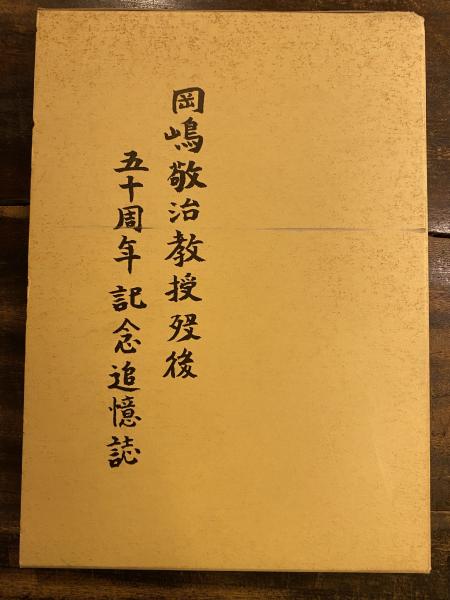 岡嶋敬治教授歿後
五十周年記念追憶誌